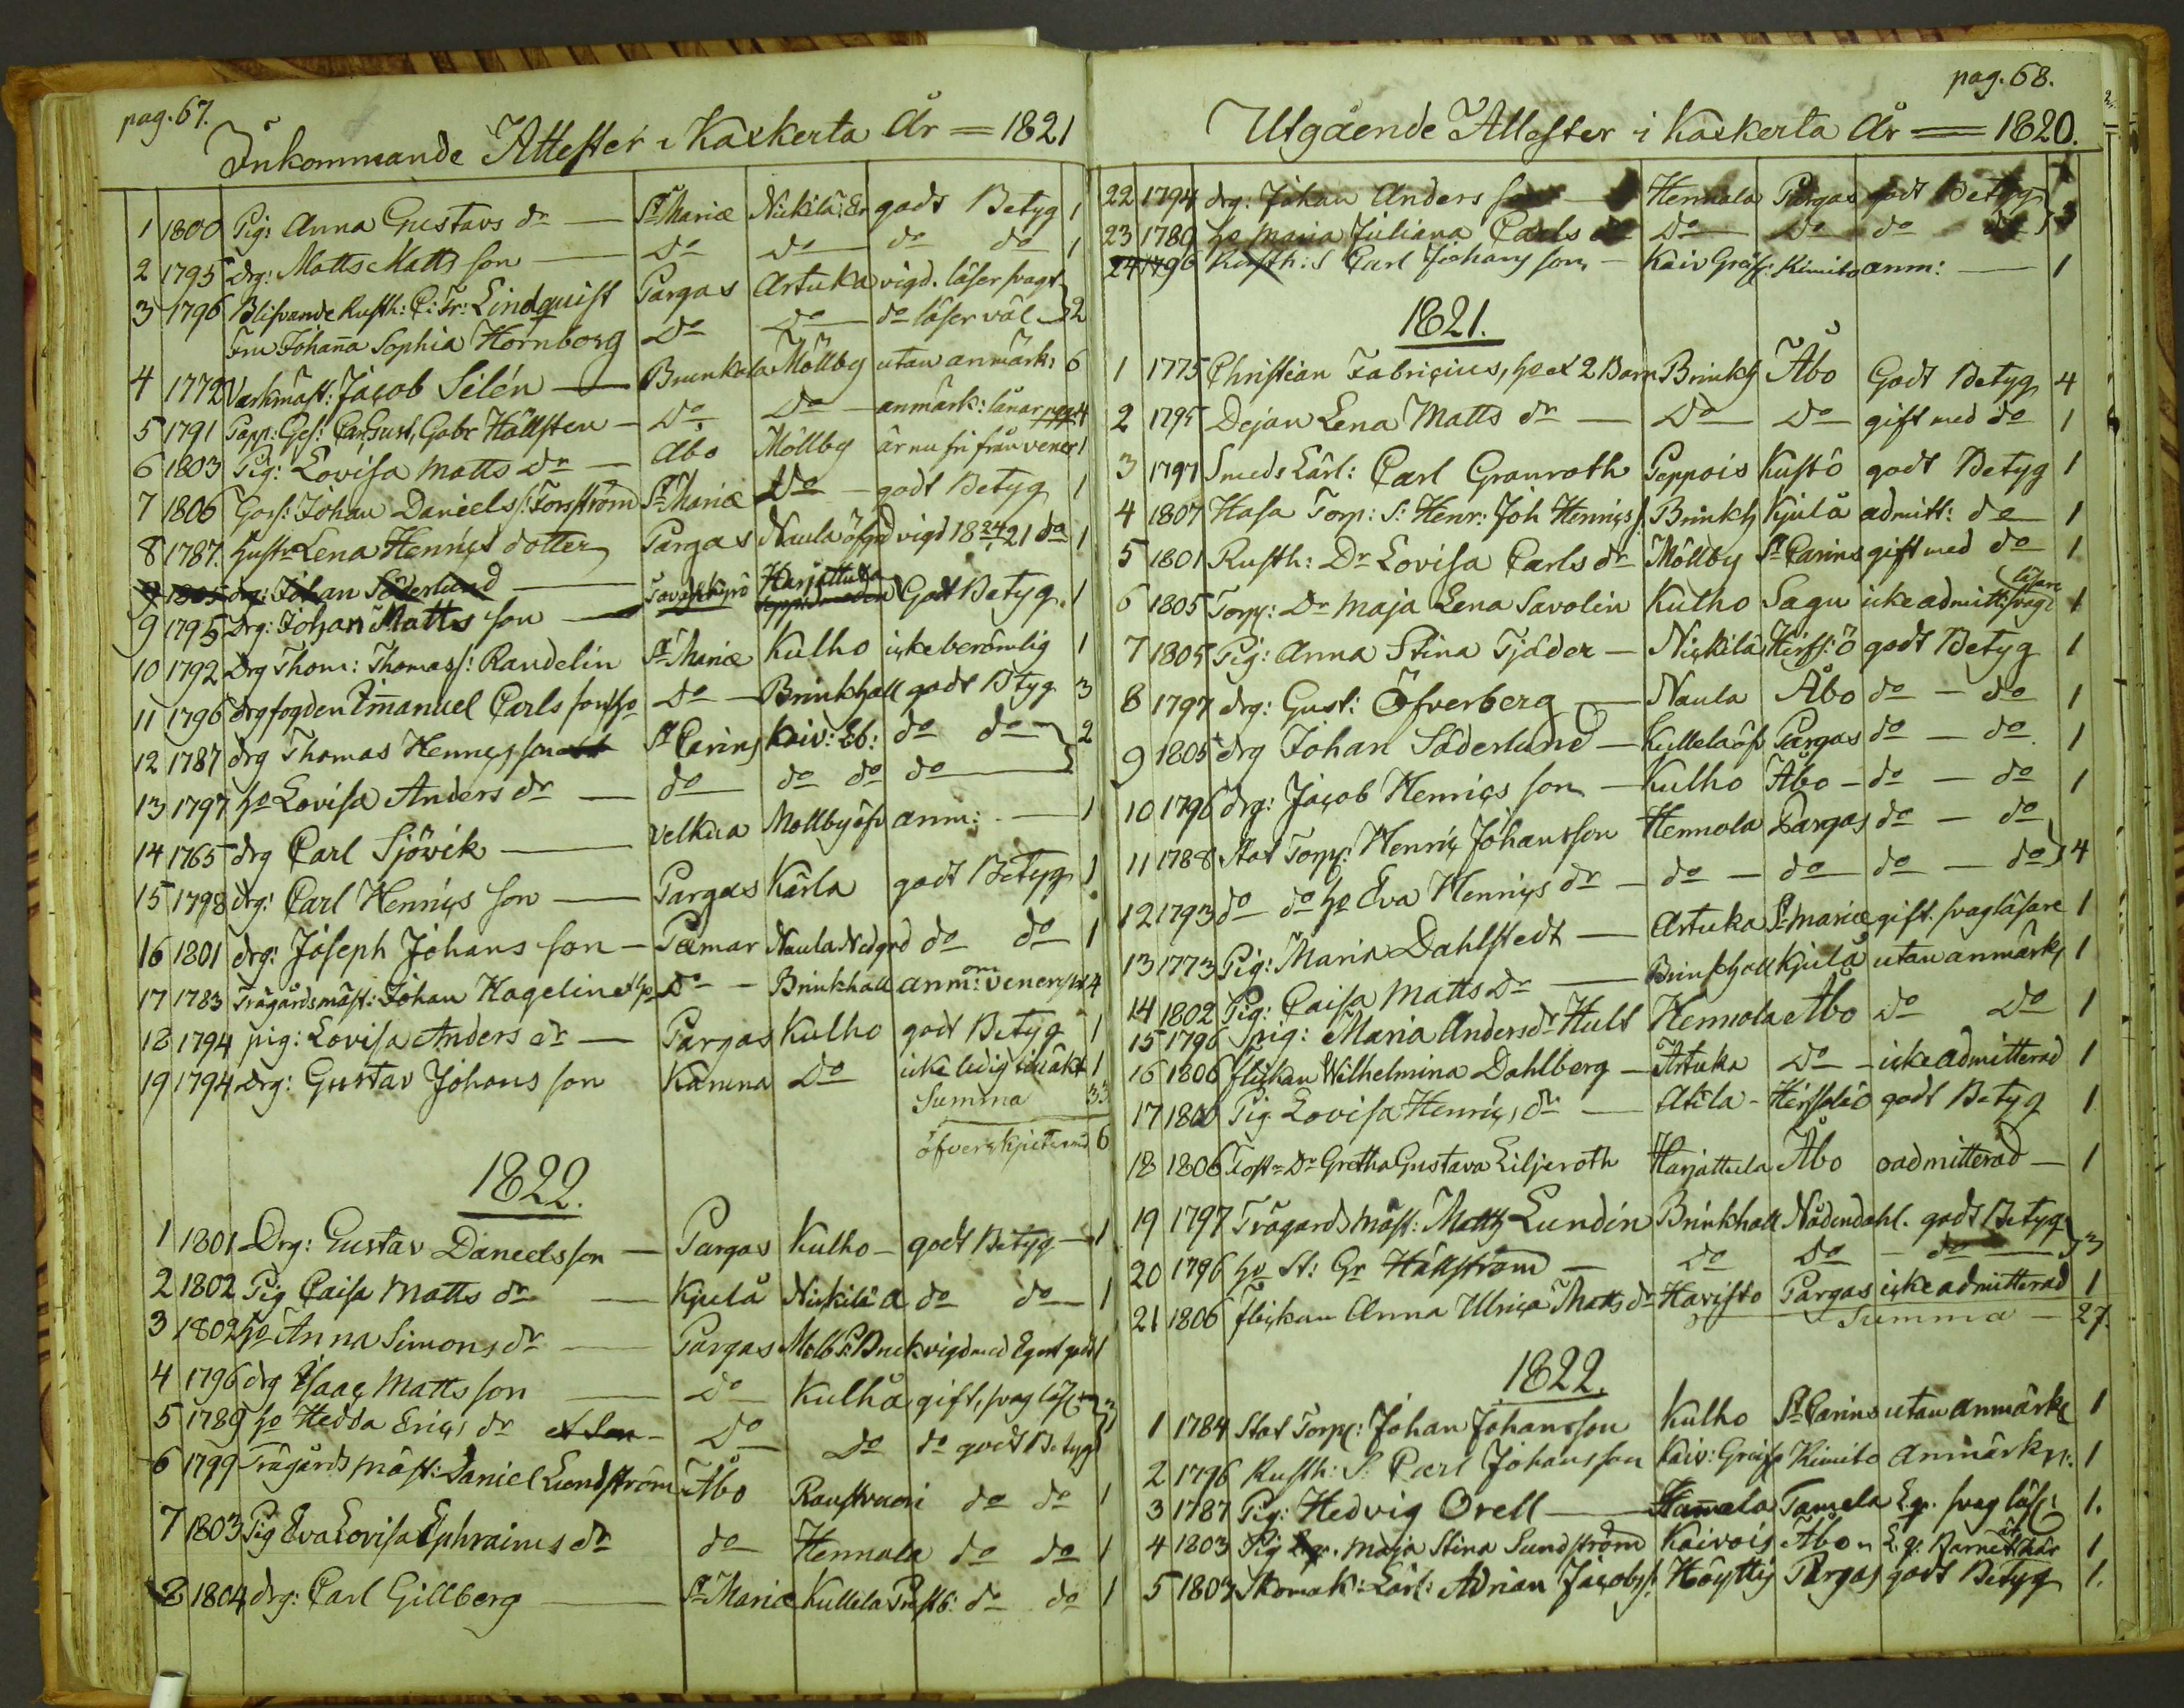 pag. 67.
Inkommande Attester i Kaxkerta År = 1821
1 1800 Pig: Anna Gustavs dr — St Mariæ Nickilä, Er godt Betyg 1
2 1795 Drg: Matts Matts son — Do Do do do 1
3 1796 Blifvande Rusth: C: Fr: Lindquist Pargas Artuka vigd. läser svagt
Fru Johanna Sophia Hornborg Do Do do läser väl 2
4 1772 Verkmäst: Jacob Silén — Brunkala Möllby utan anmärk: 6
5 1791 Papp: Ges: Car. Gust, Gabr Hällsten — Do Do anmärk: lånar 4
6 1803 Pig: Lovisa Matts Dr — Abo Möllby är nu fri från vener 1
7 1806 Goss: Johan Daniels s: Forsström St Mariæ Do — godt Betyg 1
8 1787. Hustr Lena Henrics dotter Pargas Naula öfgd vigd 18 24/4 21 do 1
9 1805 drg: Johan Söderlund
9 1795 Drg: Johan Matts son — Tavastkyrö Harjattula Godt Betyg. 1
10 1792 Drg Thom: Thomas s: Randelin St Mariæ Kulho icke berömlig 1
11 1796 drgfogden Emanuel Carls son, ho Do — Brinkhall godt Btyg 3
12 1787 drg Thomas Henricsson St Carins Kaiv: Eb: do do 2
13 1797 ho Lovisa Anders dr — do do do do
14 1765 drg Carl Sjövik — Velkua Mollby öfv anm: — 1
15 1798 drg: Carl Henrics son — Pargas Kärla godt Betyg 1
16 1801 drg: Joseph Johans son — Pemar Naula Nedgrd do do 1
17 1783 Trägårdsmäst: Johan Hagelin et ho Do — Brinkhall anm: om vener 4
18 1794 pig: Lovisa Anders dr — Pargas Kulho godt Betyg 1
19 1794 Drg: Gustav Johans son Karuna Do icke ledig til äkt 1
Summa 33
öfverskjutand 6
1822.
1 1801 Drg: Gustav Danielsson — Pargas Kulho — godt Betyg — 1
2 1802 Pig Caisa Matts dr — Kjulå Nickilä A do do 1
3 1802 ho Anna Simons dr — Pargas Möllb vigd med Egort godt 1
4 1796 drg Isaac Matts son — Do Kulhå gift, svag läs:
5 1789 ho Hedda Erics dr et Son — Do Do do godt Betyg 3
6 1799 Trägårds mäst: Daniel Lundström Åbo Raustvuori do do 1
7 1803 Pig Eva Lovisa Ephraims dr do Hennala do do 1
8 1804 drg: Carl Gillberg — St Mariæ Kullela Prestb: do do 1
pag. 68.
Utgående Attester i Kaxkerta År — 1820.
22 1794 drg: Johan Anders son — Hennala Pargas godt Betyg
23 1789 ho Maria Juliana Carls dr Do Do do do 3
24 1796 Rusth: S Carl Johans son — Kaiv Greif: Kimito anm: — 1
1821.
1 1775 Christian Fabricius, ho et 2 Barn Brinkh Åbo Godt Betyg 4
2 1795 Dejan Lena Matts dr — Do Do gift med do 1
3 1797 Smeds Lärl: Carl Granroth Peppois Kustö godt Betyg 1
4 1807 Hasa Torp: S: Henr: Joh Henrics s: Brinkh Kjulå admitt: do 1
5 1801 Rusth: Dr Lovisa Carls dr Möllby St Carins gift med do 1
6 1805 Torp: Dr Maja Lena Savolin Kulho Sagu icke admitt: svag läsare 1
7 1805 Pig: Anna Stina Tjäder — Nickilä Hirfs: ö godt Betyg 1
8 1797 drg: Gust: Öfverberg — Naula Åbo do — do 1
9 1805 drg Johan Söderlund — Kullela öfv Pargas do — do 1
10 1796 drg: Jacob Henrics son — Kulho Åbo — do — do 1
11 1788 Stat Torp: Henric Johansson Hennola Pargas do — do
12 1793 do do ho Eva Henrics dr — do — do do — do 4
13 1773 Pig: Maria Dahlstedt — Artuka St Mariæ gift. svag läsare 1
14 1802 Pig: Caisa Matts Dr — Brinkhall Kjulå utan anmärk 1
15 1796 pig: Maria Anders dr Hult Hennola Åbo Do Do 1
16 1806 flickan Wilhelmina Dahlberg — Artuka Do — icke admitterad 1
17 1800 Pig Lovisa Henrics dr — Atila — Hirfsalö godt Betyg 1
18 1806 Dr Gretha Gustava Liljeroth Harjattula Åbo oadmitterad — 1
19 1797 Trägårds mäst: Matts Lundin Brinkhall Nådendahl. godt Betyg
20 1796 ho St: Gr Hällström — Do Do — do 3
21 1806 flickan Anna Ulrica Matts dr Haristo Pargas icke admitterad 1
Summa — 27.
1822.
1 1784 Stat Torp: Johan Johansson Kulho St Carins utan anmärk 1
2 1796 Rusth: S: Carl Johansson Kaiv: Greif Kimito Anmärkn: 1
3 1787 Pig: Hedvig Orell — Tamela L. qv. svag läs: 1.
4 1803 Pig Maja Stina Sundström Kaivois Åbo L. q: Barnet är här 1
5 1803 Skomak: Lärl: Adrian Jacobs s: Höyttis Pargas godt Betyg 1.